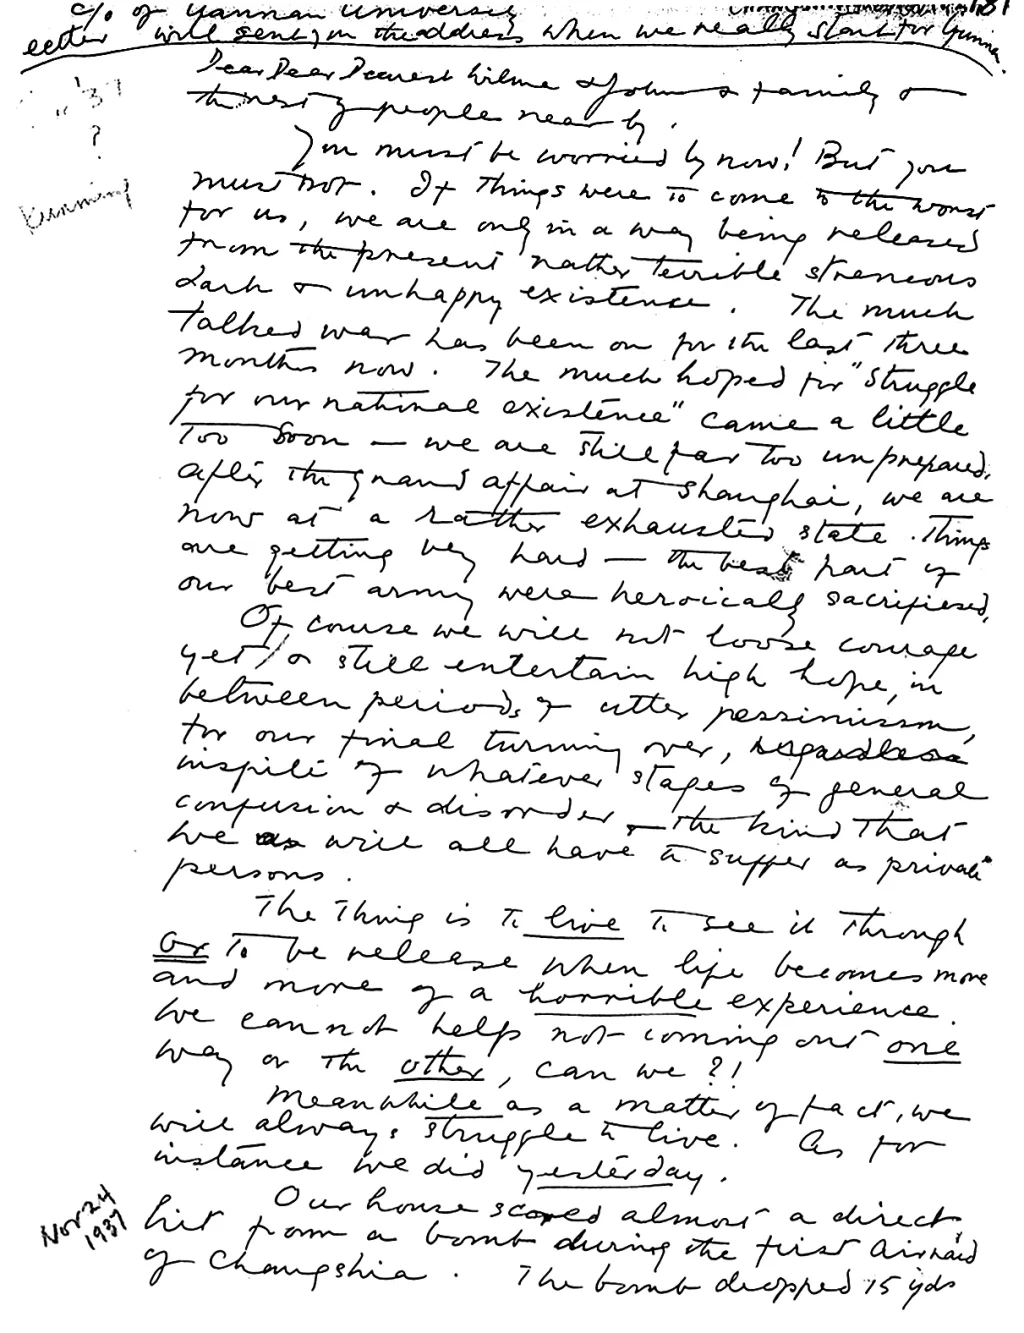 c/o of Yannan University
will send you the address when we really start for Yunnan.
'37
?
Kunming
Dear Dear Dearest Wilma & John & family &
the rest of people near by.
You must be worried by now! But you
must not. If things were to come to the worst
for us, we are only in a way being released
from the present rather terrible streneous
dark & unhappy existence. The much
talked war has been on for the last three
months now. The much hoped for "struggle
for our national existence" came a little
too soon — we are still far too unprepared.
after the grand affair at Shanghai, we are
now at a rather exhausted state. Things
are getting very hard — the best part of
our best army were heroically sacrifiesed.
Of course we will not loose courage
yet, & still entertain high hope, in
between periods of utter pessimissm,
for our final turning over, regardless
inspite of whatever stages of general
confusion & disorder & the kind that
we as will all have to suffer as private
persons.
The thing is to live to see it through
or to be release when life becomes more
and more of a horrible experience.
We cannot help not coming out one
way or the other, can we?!
Meanwhile as a matter of fact, we
will always struggle to live. As for
instance we did yesterday.
Our house scored almost a direct
Nov 24
1937
hit from a bomb during the first air raid
of Changshia. The bomb dropped 15 yds